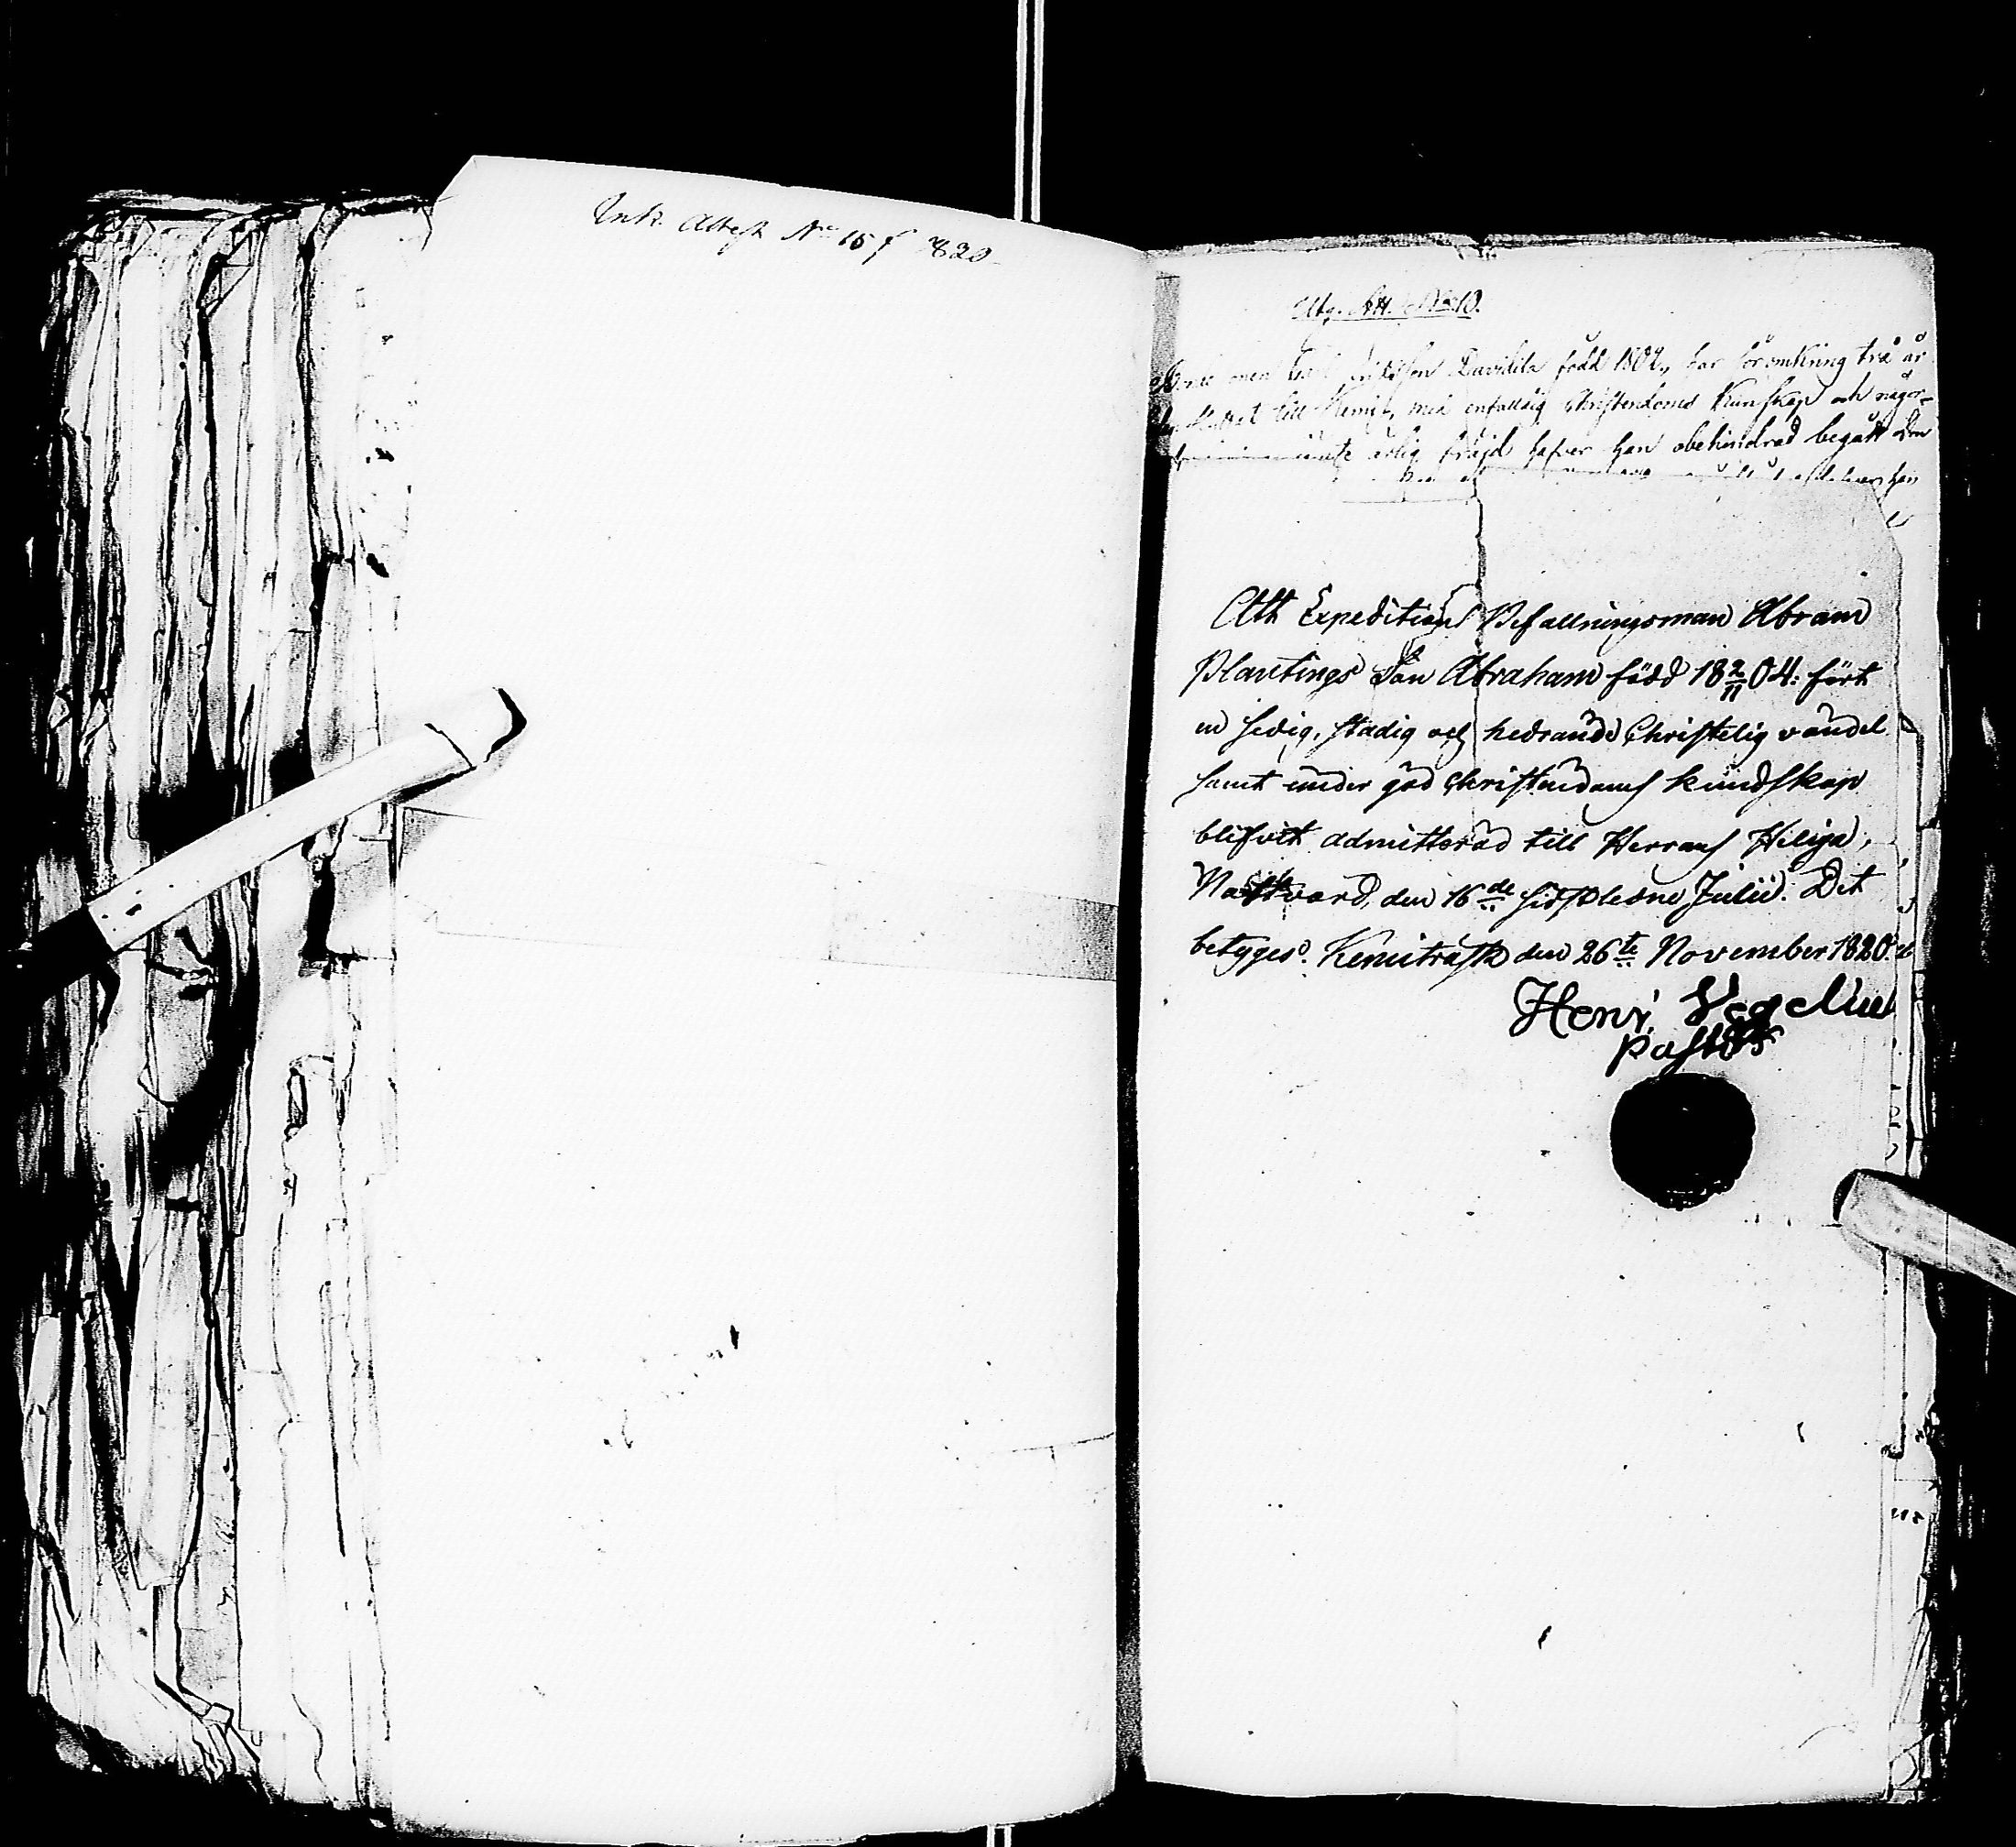 Ink. Attest No 15 f 820
Utg. Att. No 10.
född 1802, har för omkring tre år
till Kemi, med enfaldig Christendoms Kunskap och någor-
ärlig fräjd hafver han obehindrad begått den
han
Att Expeditions Befallningsman Abram
Plantings Son Abraham född 18 2/11 04: fört
en sedig, stadig och hedrande Christelig vandel
samt under god Christendoms kundskap
blifvit admitterad till Herrans Heliga
Nattvard, den 16de sidstledne Julii. Det
betyges. Kemiträsk den 26te November 1820.
Henr. Vegelius
Pastor